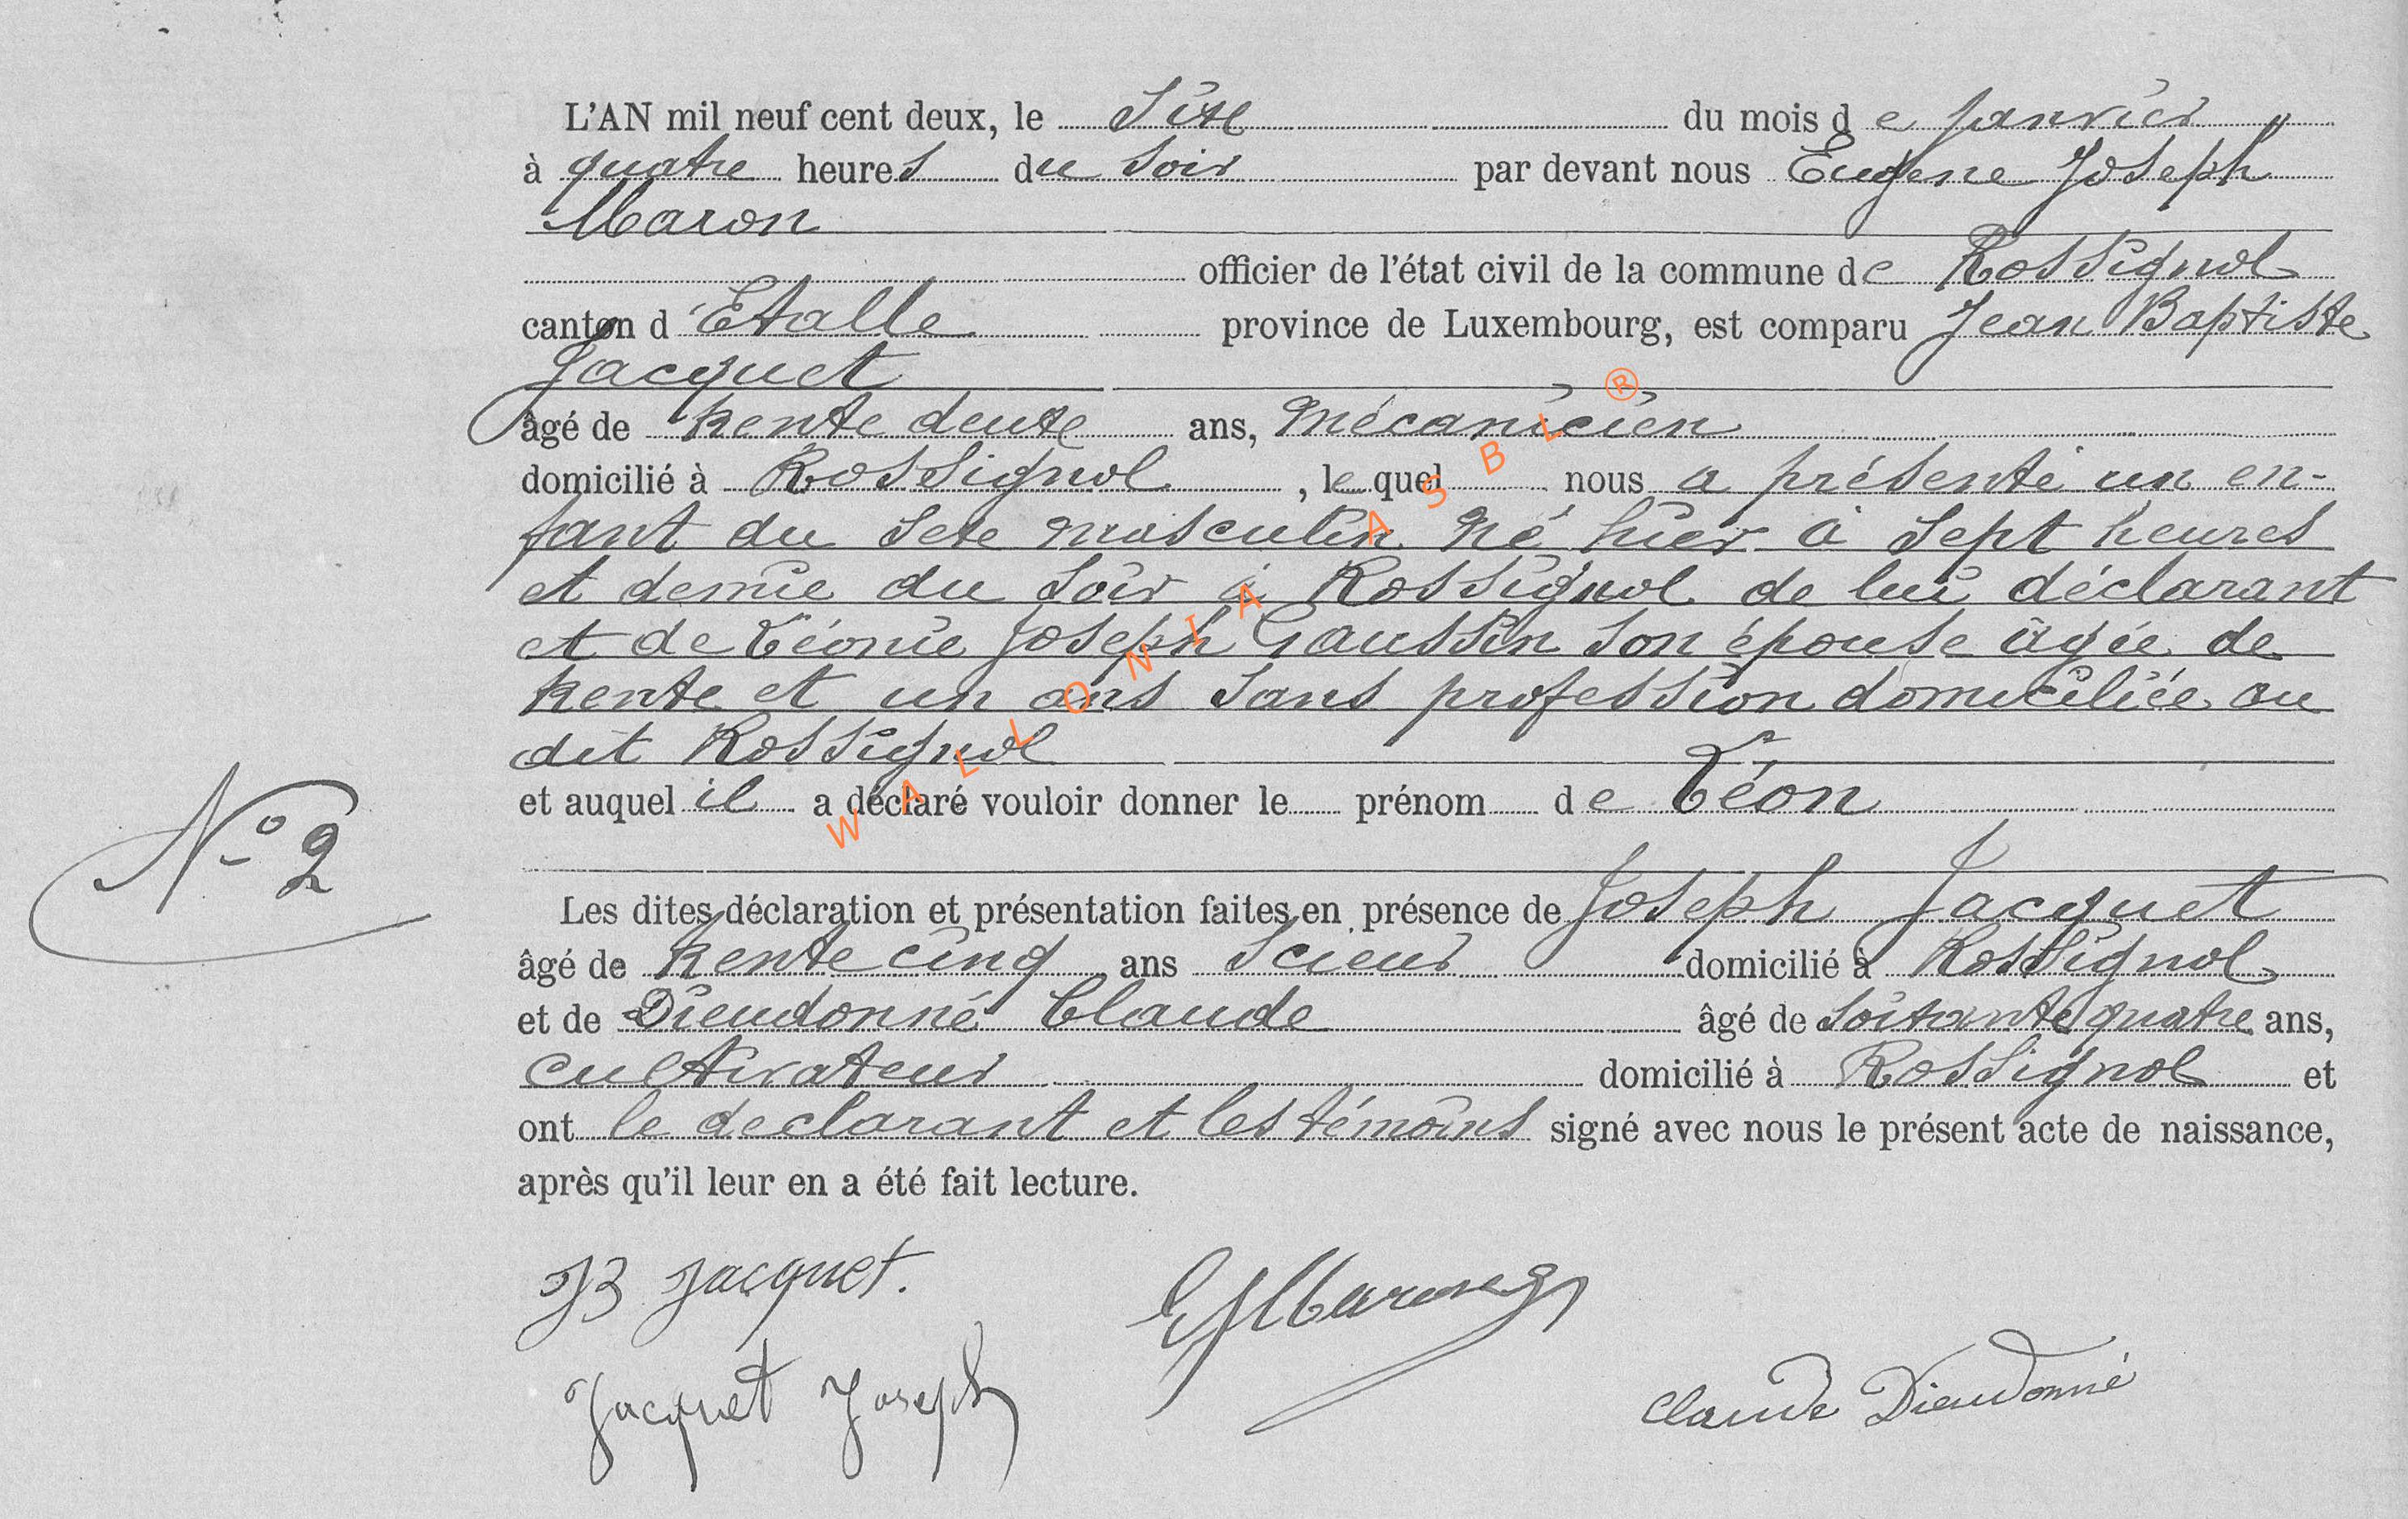 L'AN mil neuf cent deux, le Six du mois de Janvier
à quatre heures du Soir par devant nous Eugène Joseph
Maron
officier de l'état civil de la commune de Rossignol
canton d'Etalle province de Luxembourg, est comparu Jean Baptiste
Jacquet
âgé de trente deux ans, mécanicien
domicilié à Rossignol, lequel nous a présenté un en-
fant du sexe masculin né hier à sept heures
et demie du soir à Rossignol de lui déclarant
et de Léonie Joseph Gaussin son épouse âgée de
trente et un ans sans profession domiciliée au
dit Rossignol
et auquel il a déclaré vouloir donner le prénom de Léon
N° 2
Les dites déclaration et présentation faites en présence de Joseph Jacquet
âgé de trente cinq ans scieur domicilié à Rossignol
et de Dieudonné Claude âgé de soixante quatre ans,
cultivateur domicilié à Rossignol et
ont le declarant et les témoins signé avec nous le présent acte de naissance,
après qu'il leur en a été fait lecture.
JB Jacquet.
EJ Maron
Jacquet Joseph
Claude Dieudonné
WALLONIA ASBL ®